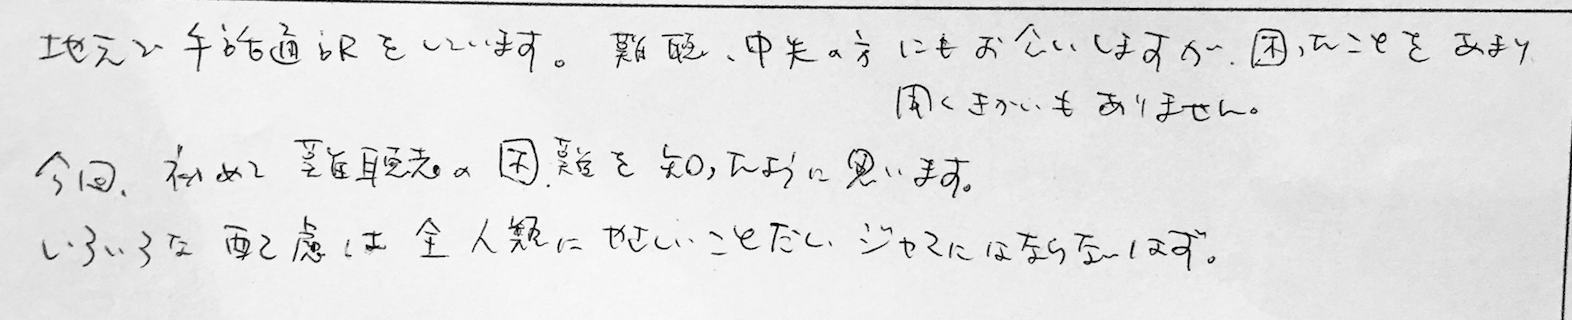 地元で手話通訳をしています。難聴、中失の方にもお会いしますが、困ったことをあまり
聞くきかいもありません。
今回、初めて難聴者の困難を知ったように思います。
いろいろな配慮は全人類にやさしいことだし、ジャマにはならないはず。